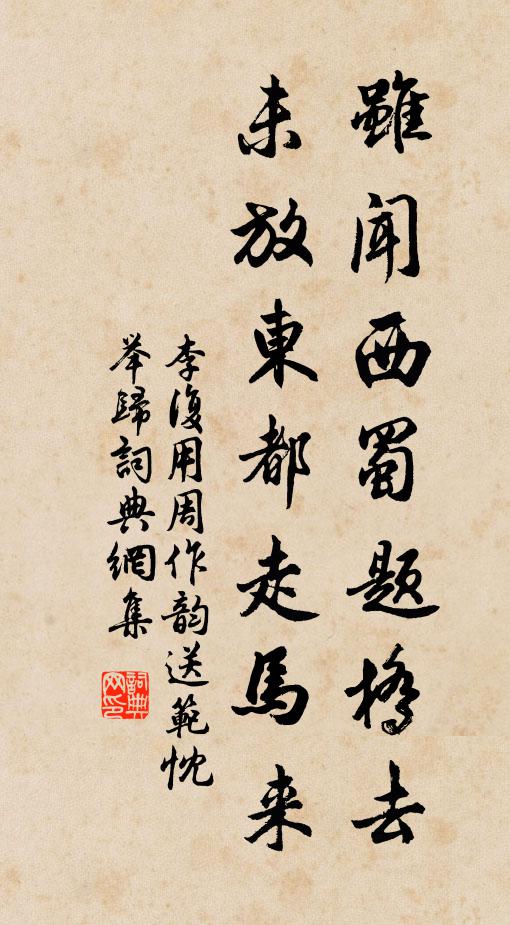 雖聞西蜀题橋去
未放東都走馬来
李復用周作韵送範忱
举歸詞典網集
詞典网印